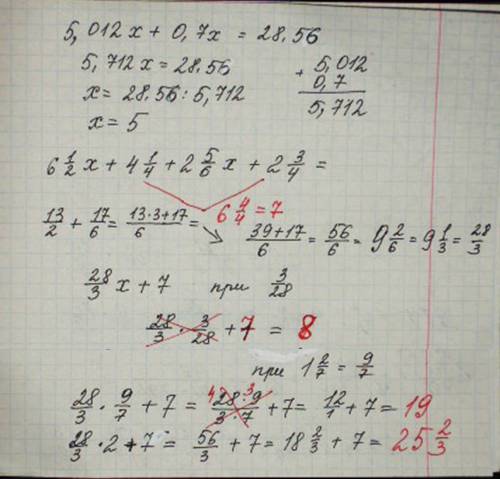 5,012x + 0,7x = 28.56
5,712x = 28.56
x = 28.56 : 5,712
x = 5
+ 5,012
0,7
5,712
6 1/2 x + 4 1/4 + 2 5/6 x + 2 3/4 =
6 4/4 = 7
13/2 + 17/6 = (13·3+17)/6 = ↘ (39+17)/6 = 56/6 = 9 2/6 = 9 1/3 = 28/3
28/3 x + 7 при 3/28
28/3 · 3/28 + 7 = 8
при 1 2/7 = 9/7
28/3 · 9/7 + 7 = (4 28 · 9 3)/(3 · 7) + 7 = 12/1 + 7 = 19
28/3 · 2 + 7 = 56/3 + 7 = 18 2/3 + 7 = 25 2/3